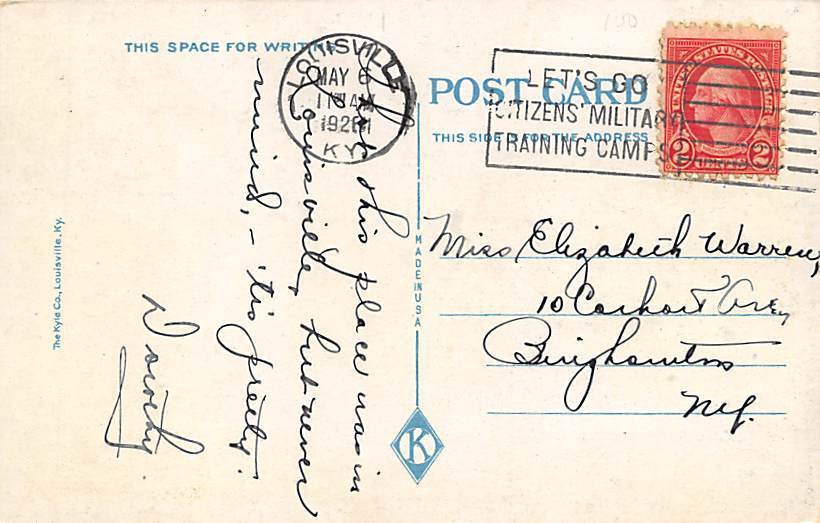 THIS SPACE FOR WRITING
LOUISVILLE
MAY 6
11 AM
192
KY.
POST CARD
THIS SIDE IS FOR THE ADDRESS
LET'S GO
CITIZENS' MILITARY
TRAINING CAMPS
UNITED STATES POSTAGE
2 2
this place was in
Louisville, but never
mind, - 'tis pretty.
Dorothy
Miss Elizabeth Warren,
10 Carhart Ave,
Binghamton
N.Y.
MADE IN USA
K
The Kyle Co., Louisville, Ky.